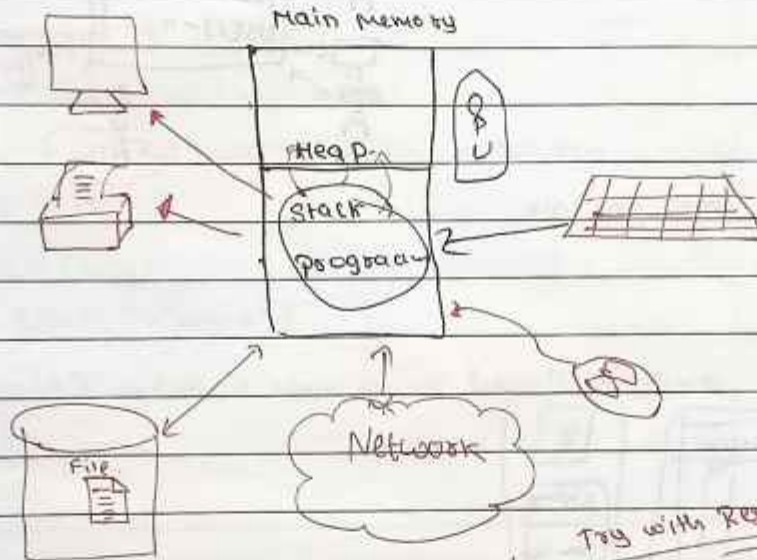 Main Memory
Heap
Stack
Program
File
Network
Try with